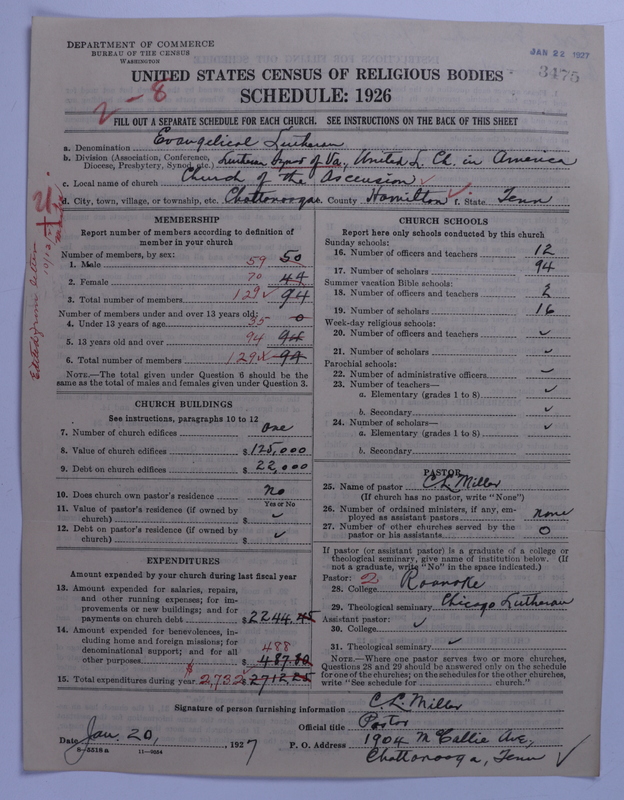 DEPARTMENT OF COMMERCE
BUREAU OF THE CENSUS
WASHINGTON
JAN 22 1927
3475
UNITED STATES CENSUS OF RELIGIOUS BODIES
SCHEDULE: 1926
2-8
FILL OUT A SEPARATE SCHEDULE FOR EACH CHURCH. SEE INSTRUCTIONS ON THE BACK OF THIS SHEET
a. Denomination Evangelical Lutheran
b. Division (Association, Conference, Diocese, Presbytery, Synod, etc.) Lutheran Synod of Va., United L. Ch. in America
c. Local name of church Church of the Ascension
d. City, town, village, or township, etc. Chattanooga e. County Hamilton f. State Tenn
MEMBERSHIP
Report number of members according to definition of
member in your church
Number of members, by sex:
1. Male 59 50
2. Female 70 44
3. Total number of members 129 94
Number of members under and over 13 years old:
4. Under 13 years of age 35 0
5. 13 years old and over 94 94
6. Total number of members 129 94
NOTE.—The total given under Question 6 should be the
same as the total of males and females given under Question 3.
CHURCH BUILDINGS
See instructions, paragraphs 10 to 12
7. Number of church edifices one
8. Value of church edifices $125,000
9. Debt on church edifices $22,000
10. Does church own pastor's residence no
Yes or No
11. Value of pastor's residence (if owned by
church) $ ✓
12. Debt on pastor's residence (if owned by
church) $ ✓
EXPENDITURES
Amount expended by your church during last fiscal year
13. Amount expended for salaries, repairs,
and other running expenses; for im-
provements or new buildings; and for
payments on church debt $2244.45
14. Amount expended for benevolences, in-
cluding home and foreign missions; for
denominational support; and for all 488
other purposes $487.80
15. Total expenditures during year $2,732 $2712.25
CHURCH SCHOOLS
Report here only schools conducted by this church
Sunday schools:
16. Number of officers and teachers 12
17. Number of scholars 94
Summer vacation Bible schools:
18. Number of officers and teachers 2
19. Number of scholars 16
Week-day religious schools:
20. Number of officers and teachers ✓
21. Number of scholars ✓
Parochial schools:
22. Number of administrative officers ✓
23. Number of teachers—
a. Elementary (grades 1 to 8) ✓
b. Secondary ✓
24. Number of scholars—
a. Elementary (grades 1 to 8) ✓
b. Secondary
PASTOR
25. Name of pastor C. L. Miller
(If church has no pastor, write "None")
26. Number of ordained ministers, if any, em-
ployed as assistant pastors none
27. Number of other churches served by the
pastor or his assistants 0
If pastor (or assistant pastor) is a graduate of a college or
theological seminary, give name of institution below. (If
not a graduate, write "No" in the space indicated.)
Pastor: 2
28. College Roanoke
29. Theological seminary Chicago Lutheran
Assistant pastor:
30. College ✓
31. Theological seminary ✓
NOTE.—Where one pastor serves two or more churches,
Questions 28 and 29 should be answered only on the schedule
for one of the churches; on the schedules for the other churches,
write "See schedule for church."
Signature of person furnishing information C. L. Miller
Official title Pastor
Date Jan. 20, 1927 P. O. Address 1904 McCallie Ave,
8-5518a 11-9984 Chattanooga, Tenn